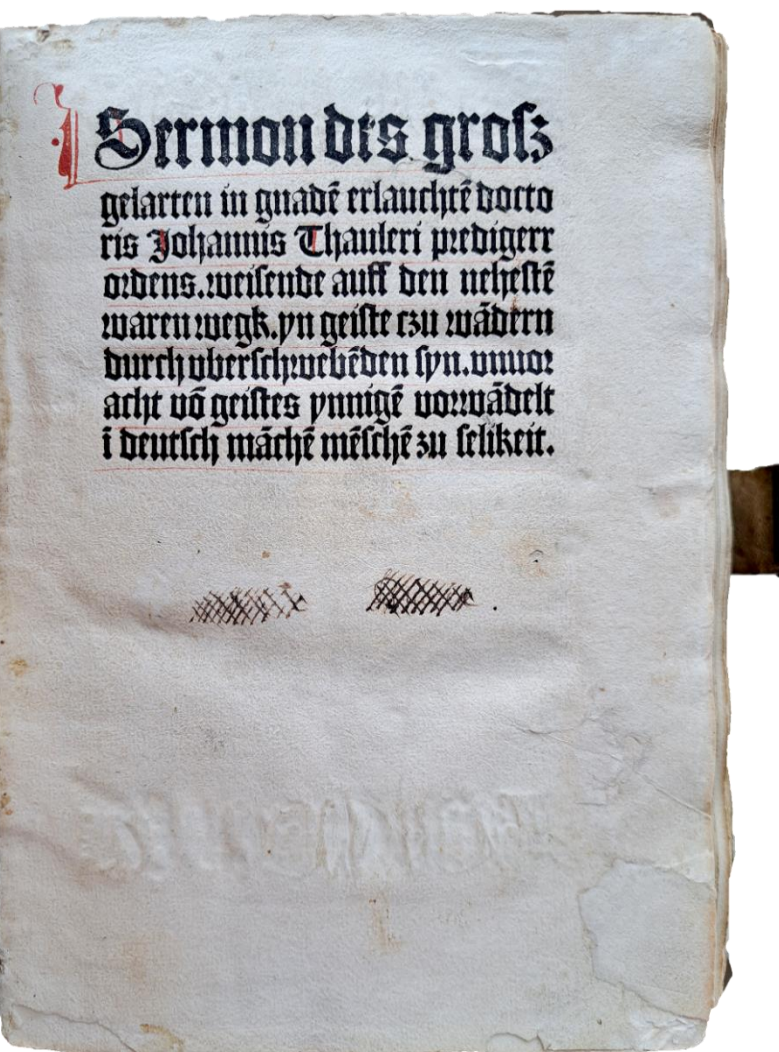 Sermon des groſz
gelarten in gnadē erlauchtē docto
ris Johannis Thauleri predigerr
ordens. weiſende auff den neheſtē
waren wegk. yn geiſte czu wādern
durch vberſchwebēden ſyn. vnuor
acht vō geiſtes ynnigē vorwādelt
ī deutſch māchē mēſchē zu ſelikeit.